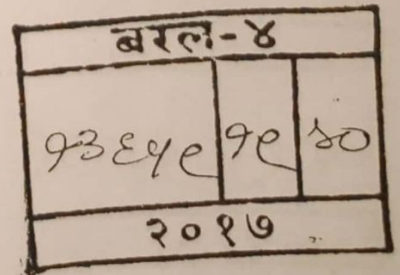 बरल-४
१३६५९ १९ ३०
२०१७